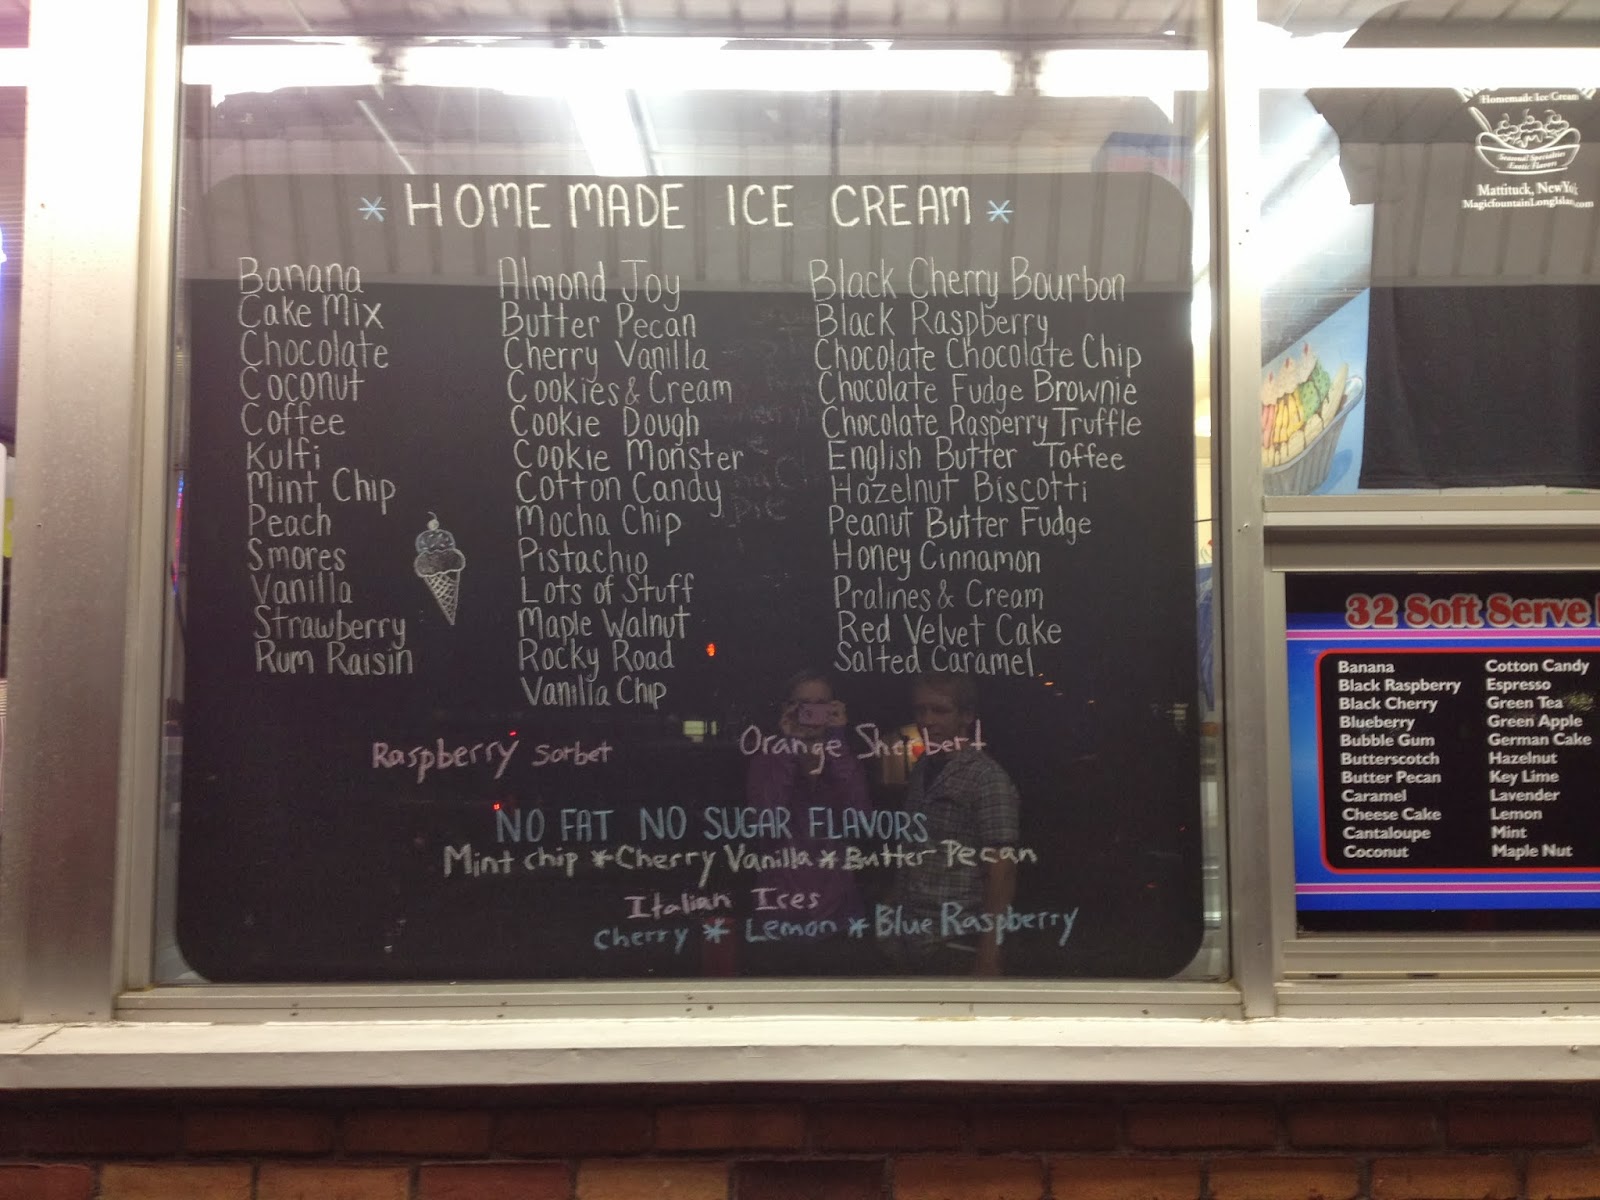 * HOME MADE ICE CREAM *
Banana
Cake Mix
Chocolate
Coconut
Coffee
Kulfi
Mint Chip
Peach
Smores
Vanilla
Strawberry
Rum Raisin
Almond Joy
Butter Pecan
Cherry Vanilla
Cookies & Cream
Cookie Dough
Cookie Monster
Cotton Candy
Mocha Chip
Pistachio
Lots of Stuff
Maple Walnut
Rocky Road
Vanilla Chip
Black Cherry Bourbon
Black Raspberry
Chocolate Chocolate Chip
Chocolate Fudge Brownie
Chocolate Rasperry Truffle
English Butter Toffee
Hazelnut Biscotti
Peanut Butter Fudge
Honey Cinnamon
Pralines & Cream
Red Velvet Cake
Salted Caramel
Raspberry Sorbet
Orange Sherbert
NO FAT NO SUGAR FLAVORS
Mint chip * Cherry Vanilla * Butter Pecan
Italian Ices
cherry * Lemon * Blue Raspberry
Homemade Ice Cream
Seasonal Specialties
Exotic Flavors
Mattituck, New
32 Soft Serve
Banana
Black Raspberry
Black Cherry
Blueberry
Bubble Gum
Butterscotch
Butter Pecan
Caramel
Cheese Cake
Cantaloupe
Coconut
Cotton Candy
Espresso
Green Tea
Green Apple
German Cake
Hazelnut
Key Lime
Lavender
Lemon
Mint
Maple Nut